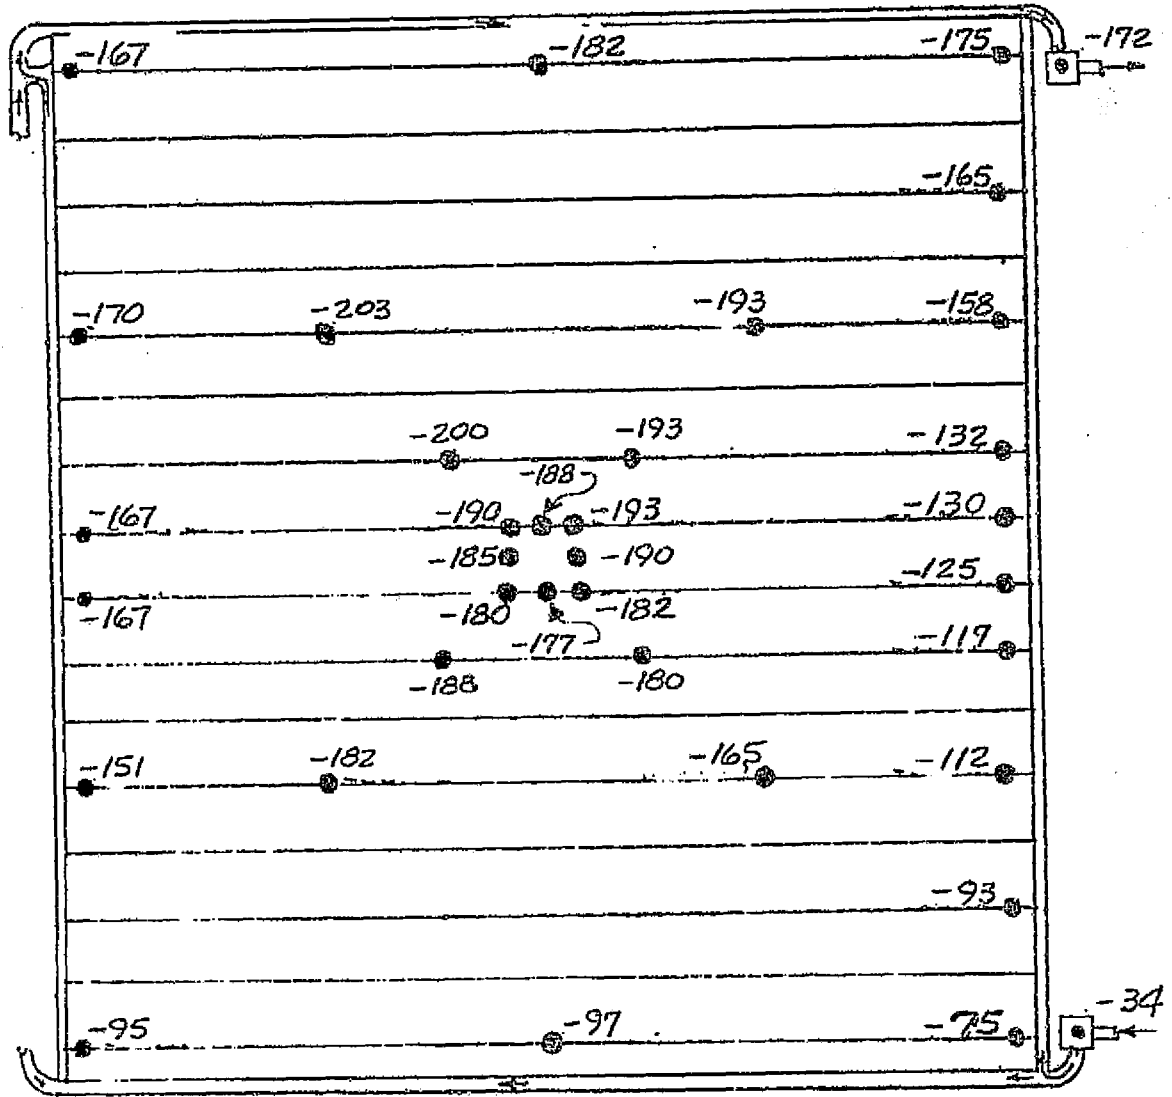 -167
-182
-175
-172
-165
-170
-203
-193
-158
-200
-193
-132
-188
-167
-190
-193
-130
-185
-190
-125
-167
-180
-182
-177
-119
-188
-180
-151
-182
-165
-112
-93
-95
-97
-75
-34